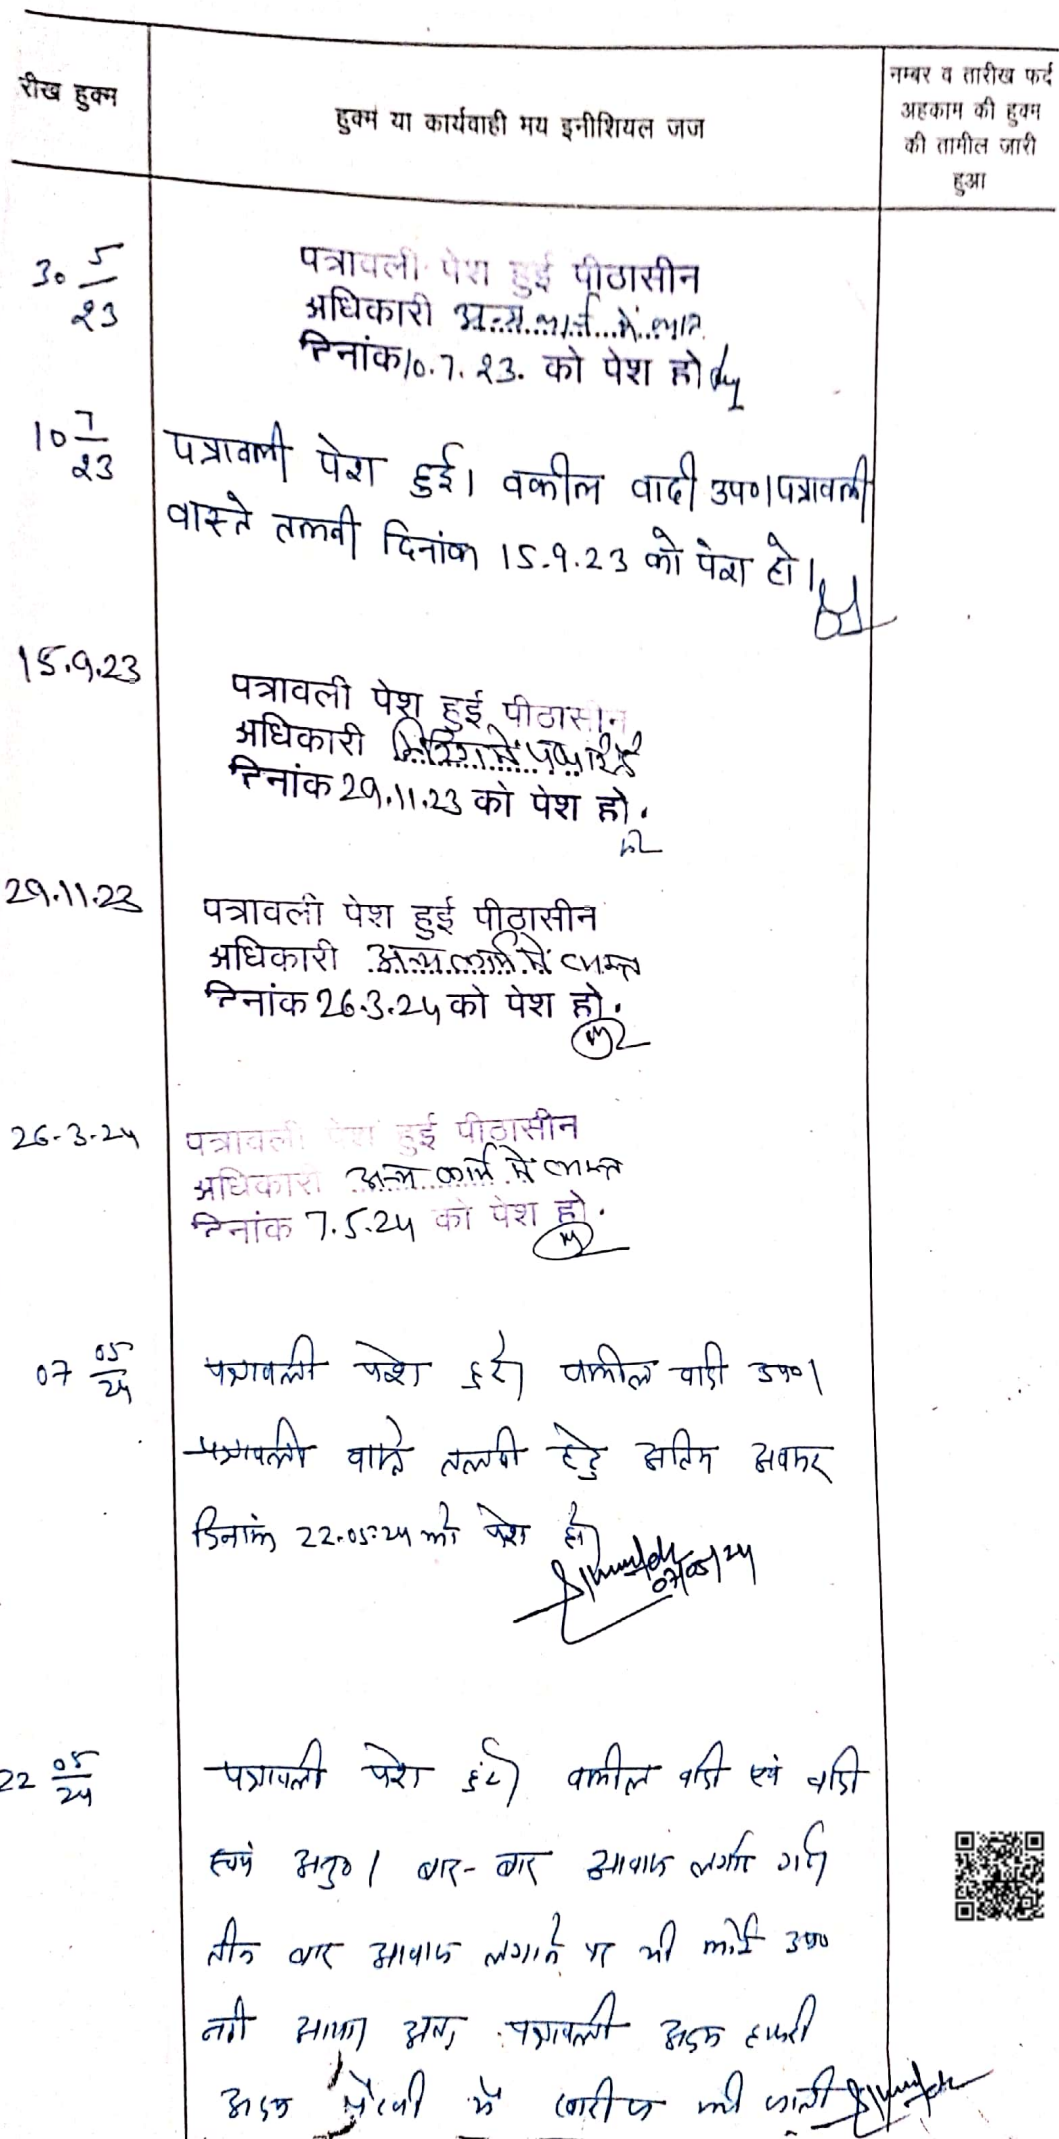 रीख हुक्म
हुक्म या कार्यवाही मय इनीशियल जज
नम्बर व तारीख फर्द
अहकाम की हुक्म
की तामील जारी
हुआ
30 5/23
पत्रावली पेश हुई पीठासीन
अधिकारी अन्य कार्य में
दिनांक 10.7.23. को पेश हो
10 7/23
पत्रावली पेश हुई। वकील वादी उप०। पत्रावली
वास्ते तलबी दिनांक 15.9.23 को पेश हो।
15.9.23
पत्रावली पेश हुई पीठासीन
अधिकारी
दिनांक 29.11.23 को पेश हो.
29.11.23
पत्रावली पेश हुई पीठासीन
अधिकारी अन्य कार्य में व्यस्त
दिनांक 26.3.24 को पेश हो.
26-3-24
पत्रावली पेश हुई पीठासीन
अधिकारी अन्य कार्य में व्यस्त
दिनांक 7.5.24 को पेश हो.
07 05/24
पत्रावली पेश हुई। वकील वादी उप०।
पत्रावली वास्ते तलबी हेतु अंतिम अवसर
दिनांक 22.05.24 को पेश हो।
07/05/24
22 05/24
पत्रावली पेश हुई। वकील वादी एवं वादी
स्वयं अनु०। बार-बार आवाज लगाई गई।
तीन बार आवाज लगाने पर भी कोई उप०
नहीं आया। अतः पत्रावली अदम हाजरी
अदम पैरवी में खारीज की जाती